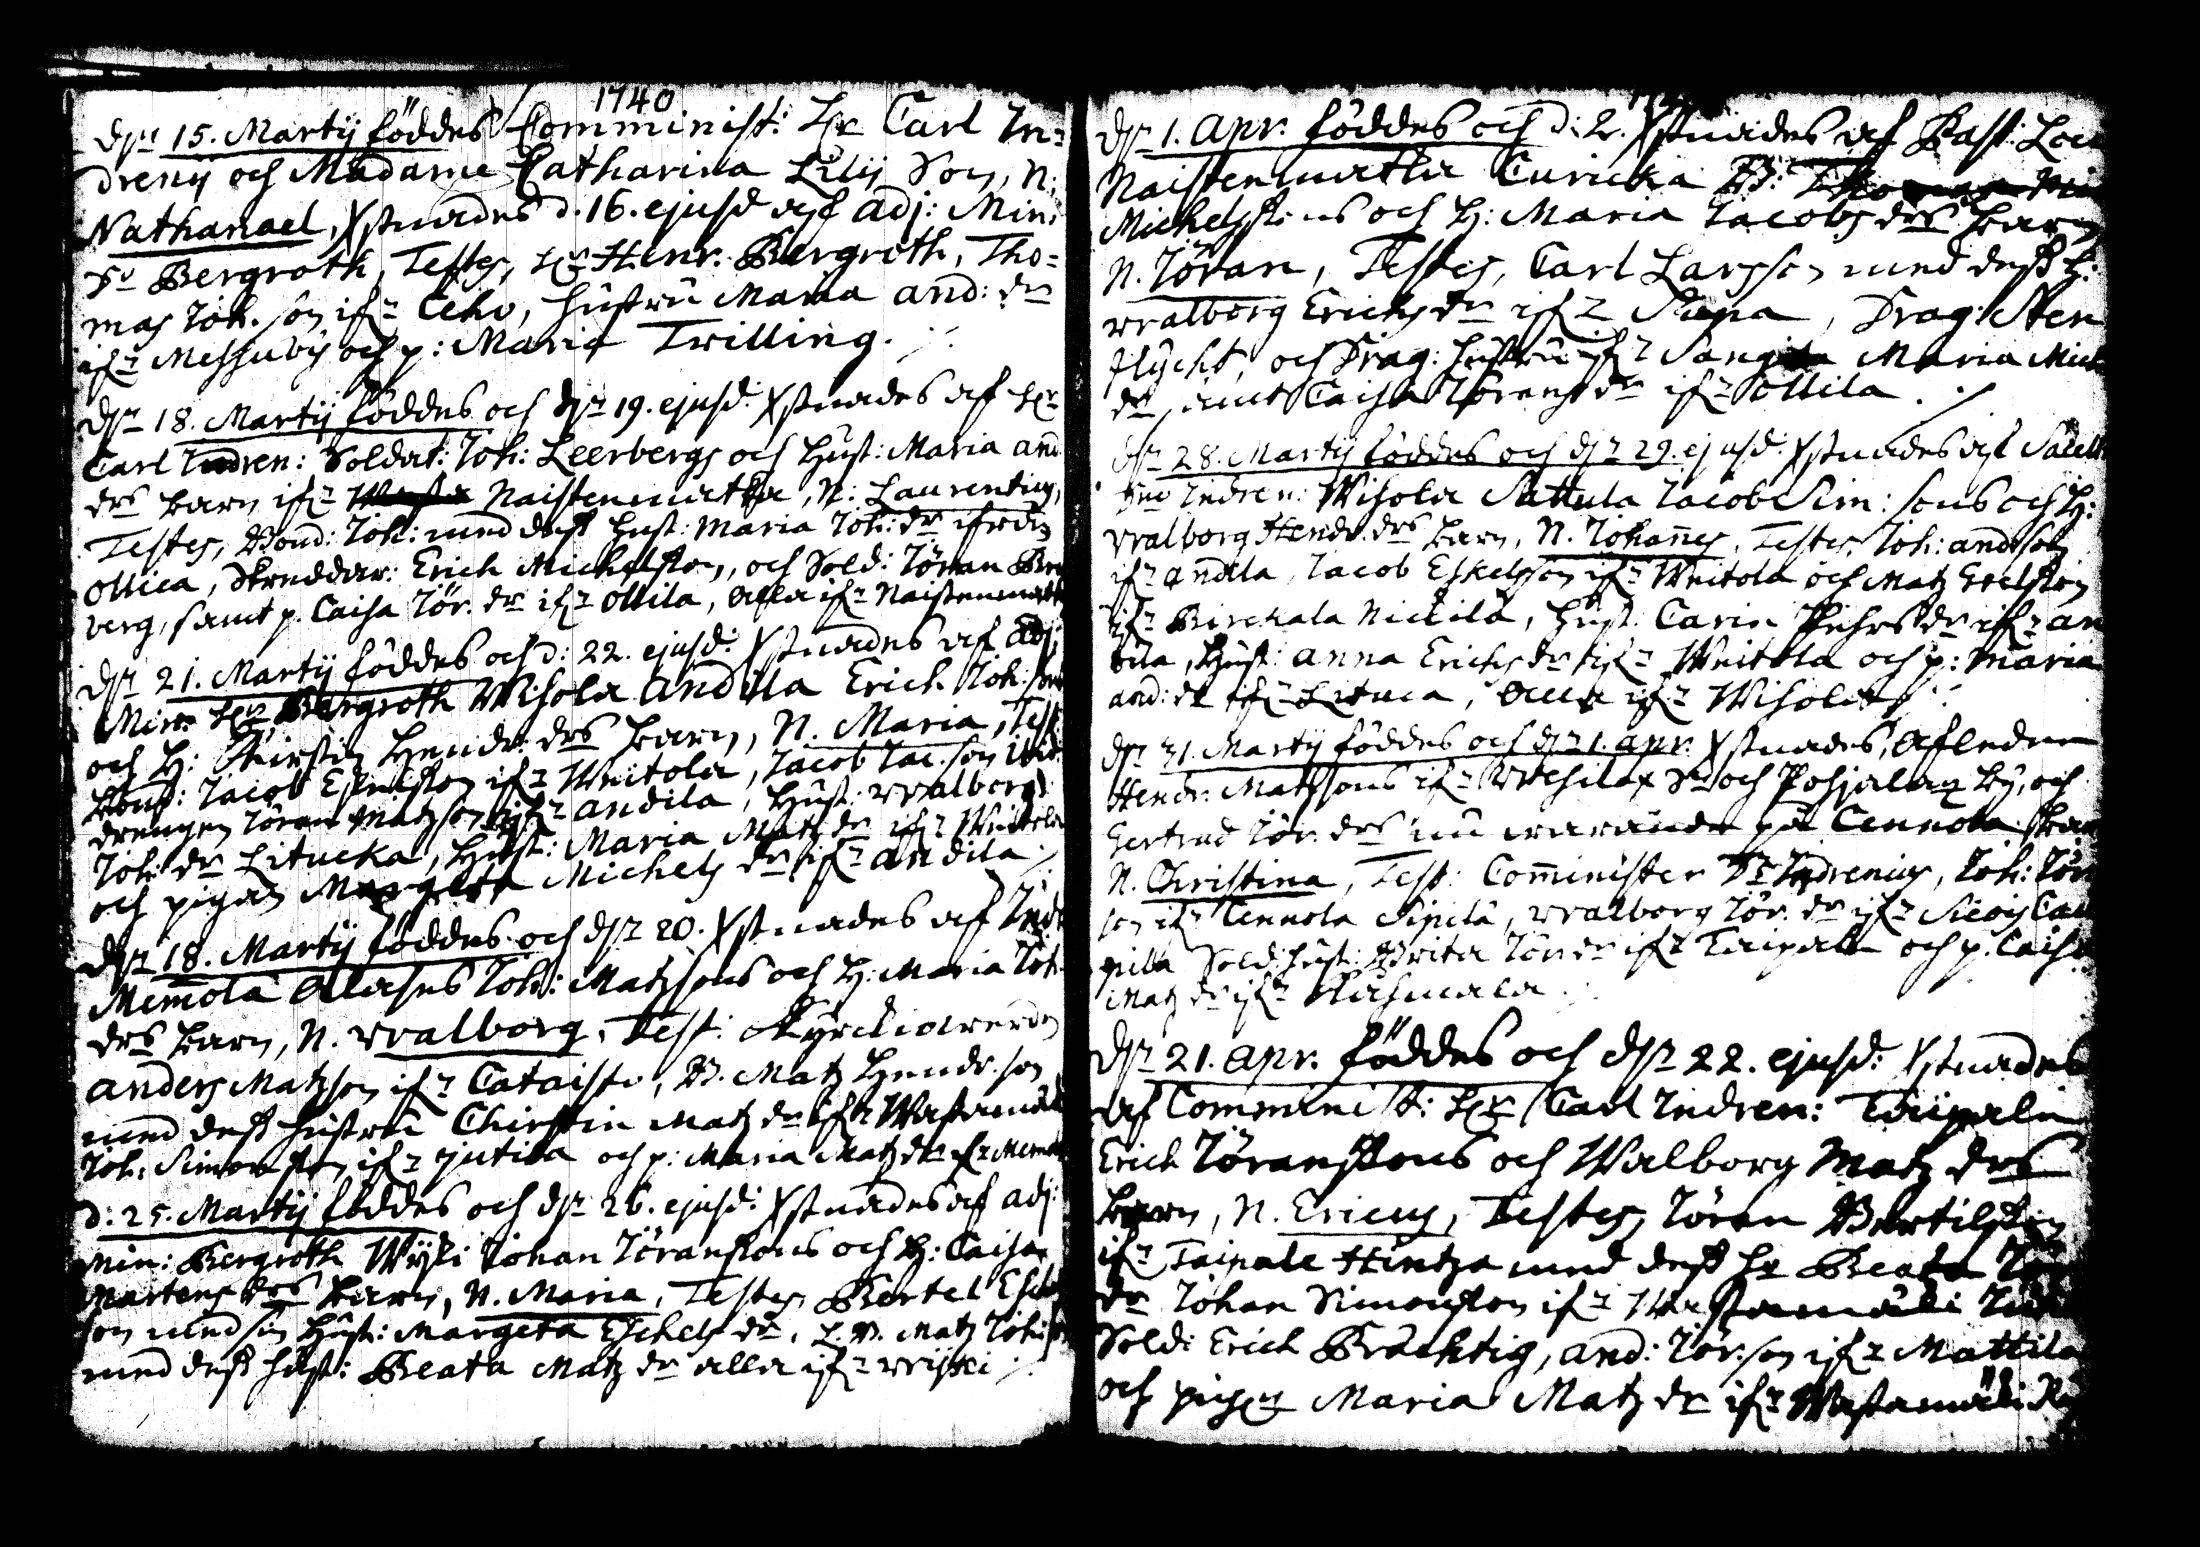 1740
d. 15. Martij föddes Comminist: Hr Carl In=
drenij och Madame Catharina Lilij Son, N:
Nathanael, Xstnades d. 16. ejusd af Adj: Min:
Dn Bergroth, Testes, Hr Henr. Bergroth, Tho=
mas Joh. son ifr Ceho, hustru Maria And: dr
ifr Messuby och p: Maria Trilling.
dn 18. Martij föddes och dn 19. ejusd: Xstnades af Hr
Carl Indren: Soldat: Joh: Leerbergs och Hust: Maria And:
drs barn ifr Naistenmatka, N: Laurentius,
Testes, Bond: Joh: med dess Hust: Maria Joh: dr ifrån
Ollila, Skreddar: Erich Michelsson, och Sold: Jöran
berg, samt p. Caisa Jör. dr ifr Ollila, alla ifr Naistenmatk
dn 21. Martij föddes och d: 22. ejusd: Xstnades af Adj:
Min: Hr Bergroth Wihola Andila Erich Joh: sons
och H: Kirstin Hendr: drs barn, N. Maria, Test:
Bond: Jacob Eskelsson ifr Weitola, Jacob Jac. son
drengen Jöran Matzson ifr Andila, Hust: Walborg
Joh: dr Litucka, Hust: Maria Matz dr ifr Weitola
och pigan Margeta Michels dr ifr Andila
dn 18. Martij föddes och dn 20. Xstnades af Indr
Memola Alases Joh: Matzsons och H: Maria Joh:
drs barn, N. Walborg, Test: Kyrckiowerden
Anders Matzson ifr Cataisto, B. Matz Hendr: son
med dess hustru Chirstin Matz dr ifr Wastamäki
Joh: Simonsson ifr Jutila och p: Maria Matz dr ifr Memola
d: 25. Martij föddes och dn 26. ejusd: Xstnades af Adj:
Min: Bergroth Wijki Johan Jöranssons och H: Caisa
Martens drs barn, N. Maria, Testes Bertel Eskel
son med sin Hust: Margeta Eskels dr, Matz Joh: son
med dess hust: Beata Matz dr alla ifr Wijki
dn 1. Apr. föddes och d: 2. Xstnades af Past: Loci
Naistenmatka Curicka B:
Michelssons och H: Maria Jacobs drs barn
N. Jöran, Testes, Carl Larsson med dess H:
Walborg Erichs dr ifr, Drag: Sten
flycht, och Drag: hustru ifr Maria Mich:
dr samt Caisa Jörans dr ifr Ollila.
dn 28. Martij föddes och dn 29. ejusd: Xstnades af Sacell:
Dno Indren: Wihola Sattula Jacob Sim: sons och H:
Walborg Hendr. drs barn, N. Johannes, Testes, Joh: And: son
ifr Andila, Jacob Eskelsson ifr Weitola och Matz Erelsson
ifr Birckala Nickilä, Hust: Carin Pehrs dr ifr An
dila, Hust: Anna Erichs dr ifr Weitola och p: Maria
And: dr ifr Lituca, alla ifr Wihola
dn 31. Martij föddes och dn 1. Apr: Xstnades, afledne
Hendr: Matzsons ifr Wesilax Sn och Pohjalax by, och
Gertrud Jör. drs nu warande på Cennola barn
N. Christina, Test: Comminister Dn Indrenius, Joh: Jör:
son ifr Cennola Sipilä, Walborg Jör. dr ifr
pila Sold: hust: Brita Jör: dr ifr Taipale och p. Caisa
Matz dr ifr
dn 21. Apr. föddes och dn 22. ejusd: Xstnades
af Comminist: Hr Carl Indren: Taipale
Erich Jöranssons och Walborg Matz drs
barn, N. Ericus, Testes, Jöran Bertilsson
ifr Taipale Hintza med dess H: Beata Jör
dr Johan Simonsson ifr Wastamäki
Sold: Erich Brächtig, And: Jör: son ifr Mattila
och pigan Maria Matz dr ifr Wastamäki